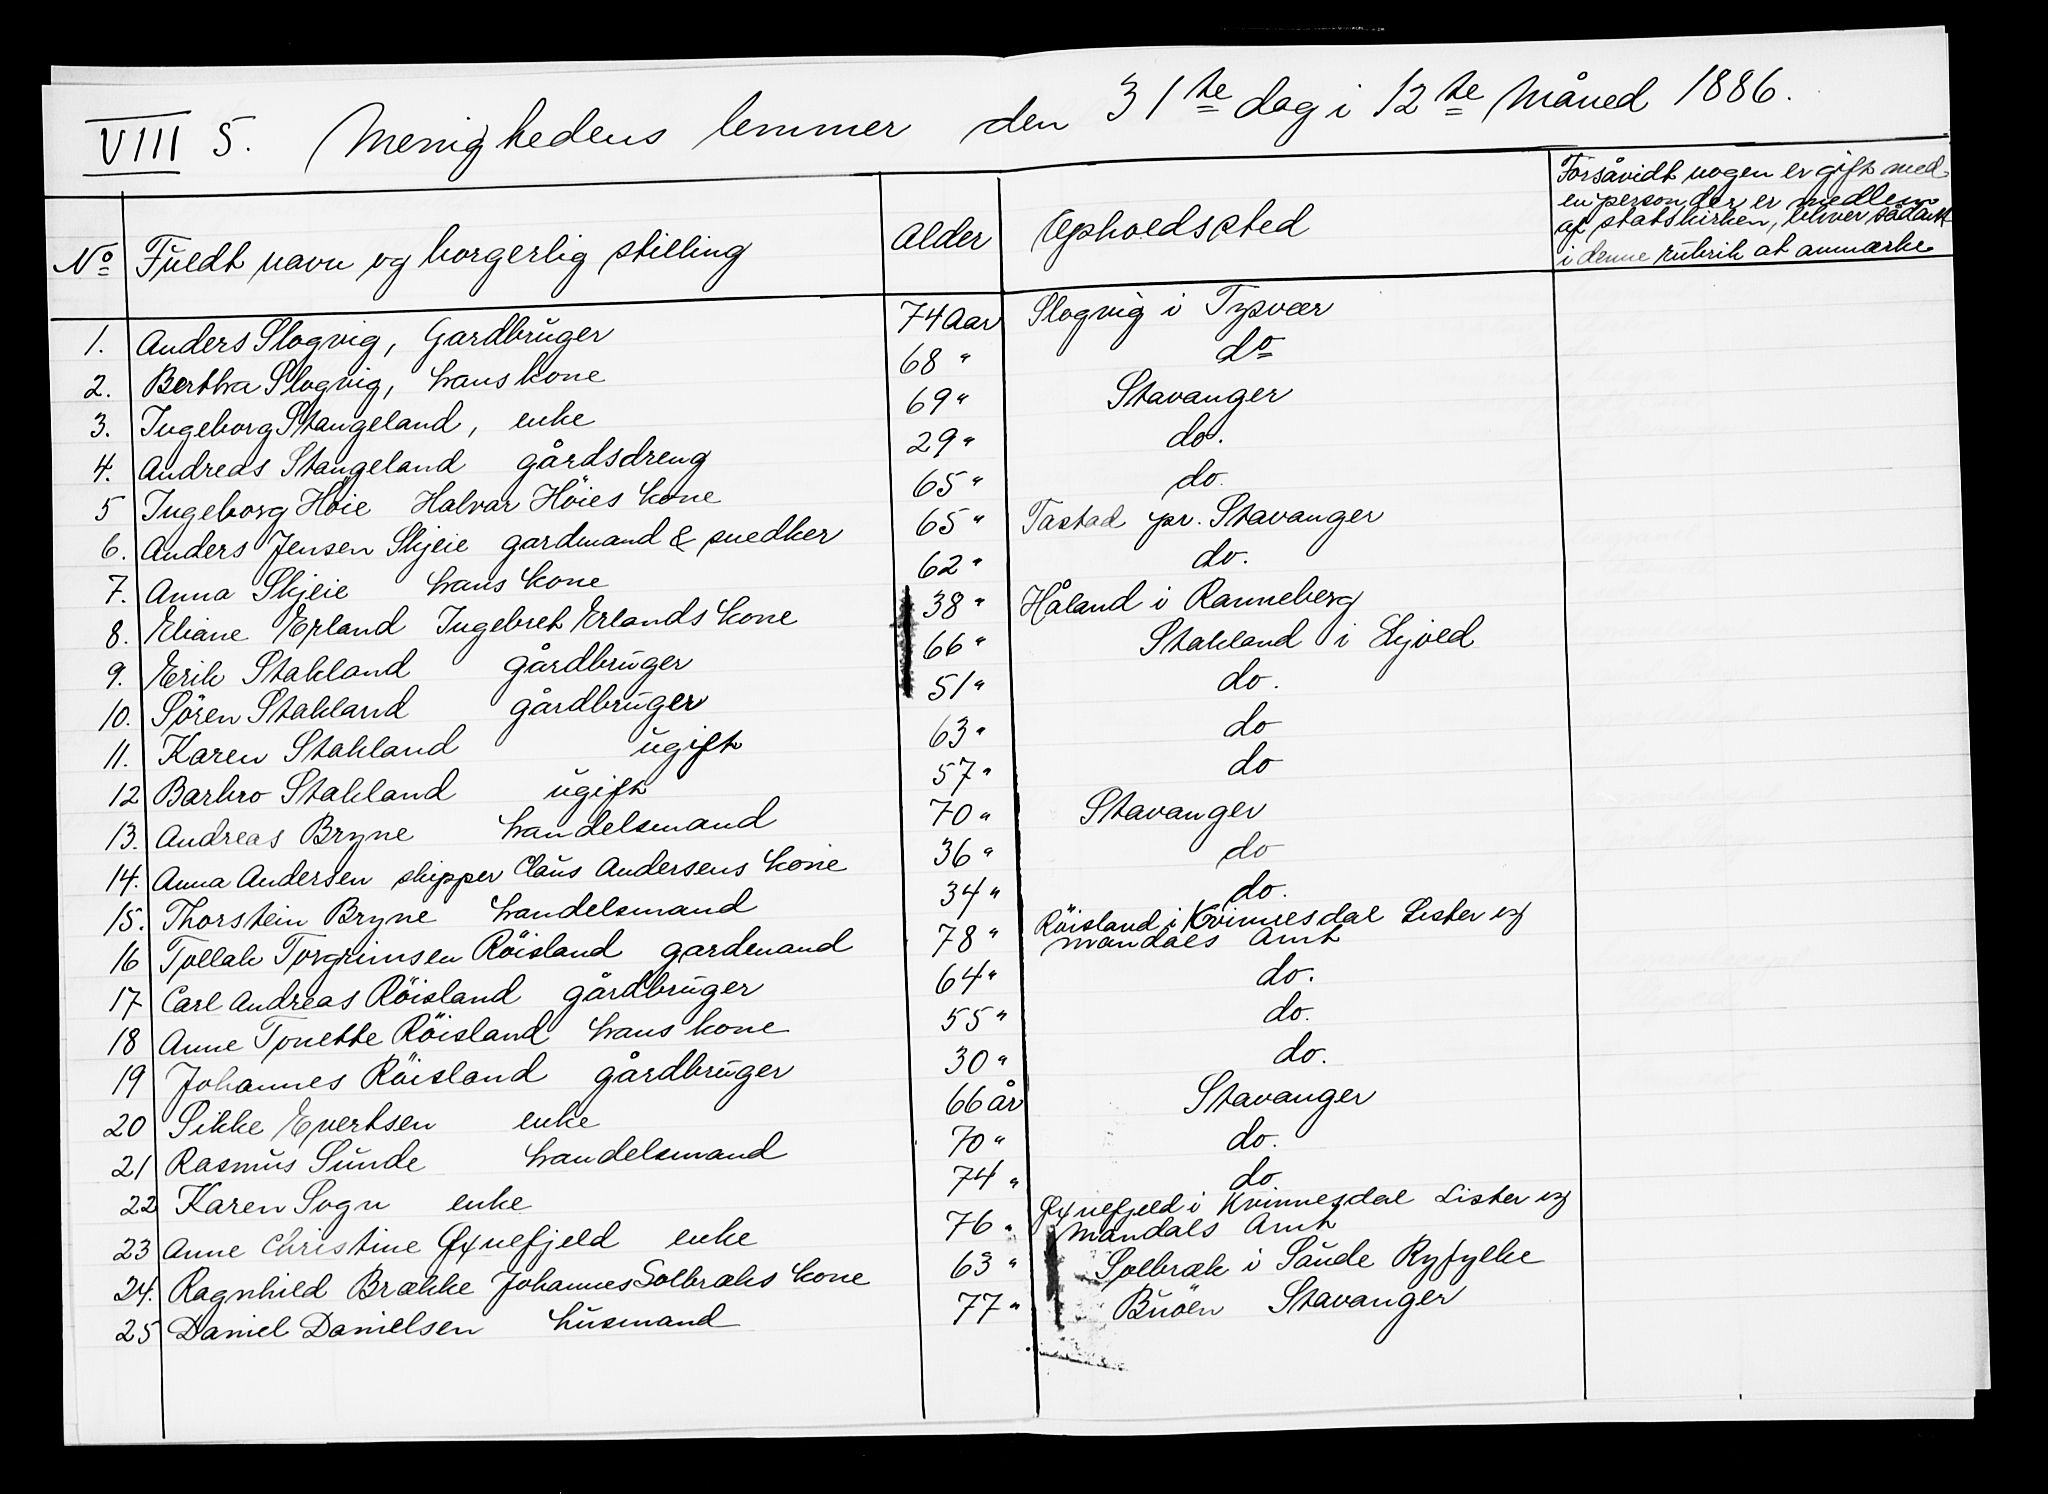 VIII 5. Menighedens lemmer den 31te dag i 12te Måned 1886.
No Fuldt navn og borgerlig stilling Alder Opholdssted Forsåvidt nogen er gift med
en person der er medlem
af statskirken, bliver sådant
i denne rubrik at anmærke
1. Anders Slogvig, Gardbruger 74 Aar Slogvig i Tysvær
2. Bertha Slogvig, hans kone 68 " do
3. Ingeborg Stangeland, enke 69 " Stavanger
4. Andreas Stangeland gårdsdreng 29 " do.
5 Ingeborg Høie Halvar Höies kone 65 " do.
6. Anders Jensen Skjeie gardmand & snedker 65 " Tastad pr. Stavanger
7. Anna Skjeie hans kone 62 " do.
8. Eliane Erland Ingebret Erlands kone 38 " Håland i Ranneberg
9. Erik Stakland gårdbruger 66 " Stakland i Skjold
10. Sören Stakland gårdbruger 51 " do.
11. Karen Stakland ugift 63 " do
12 Barbro Stakland ugift 57 " do
13. Andreas Bryne handelsmand 70 " Stavanger
14. Anna Andersen skipper Claus Andersens kone 36 " do
15. Thorstein Bryne handelsmand 34 " do.
16 Tollak Torgrimsen Röisland gardmand 78 " Röisland i Kvinnesdal Lister og
Mandals Amt
17 Carl Andreas Röisland gårdbruger 64 " do.
18 Anne Tonette Röisland hans kone 55 " do.
19 Johannes Röisland gårdbruger 30 " do.
20 Sikke Evertsen enke 66 år Stavanger
21 Rasmus Sunde handelsmand 70 " do.
22 Karen Sogn enke 74 " do
23 Anne Christine Øxnefjeld enke 76 " Øxnefjeld i Kvinnesdal Lister og
Mandals Amt
24. Ragnhild Brække Johannes Solbræks kone 63 " Solbræk i Saude Ryfylke
25 Daniel Danielsen husmand 77 " Buöen Stavanger